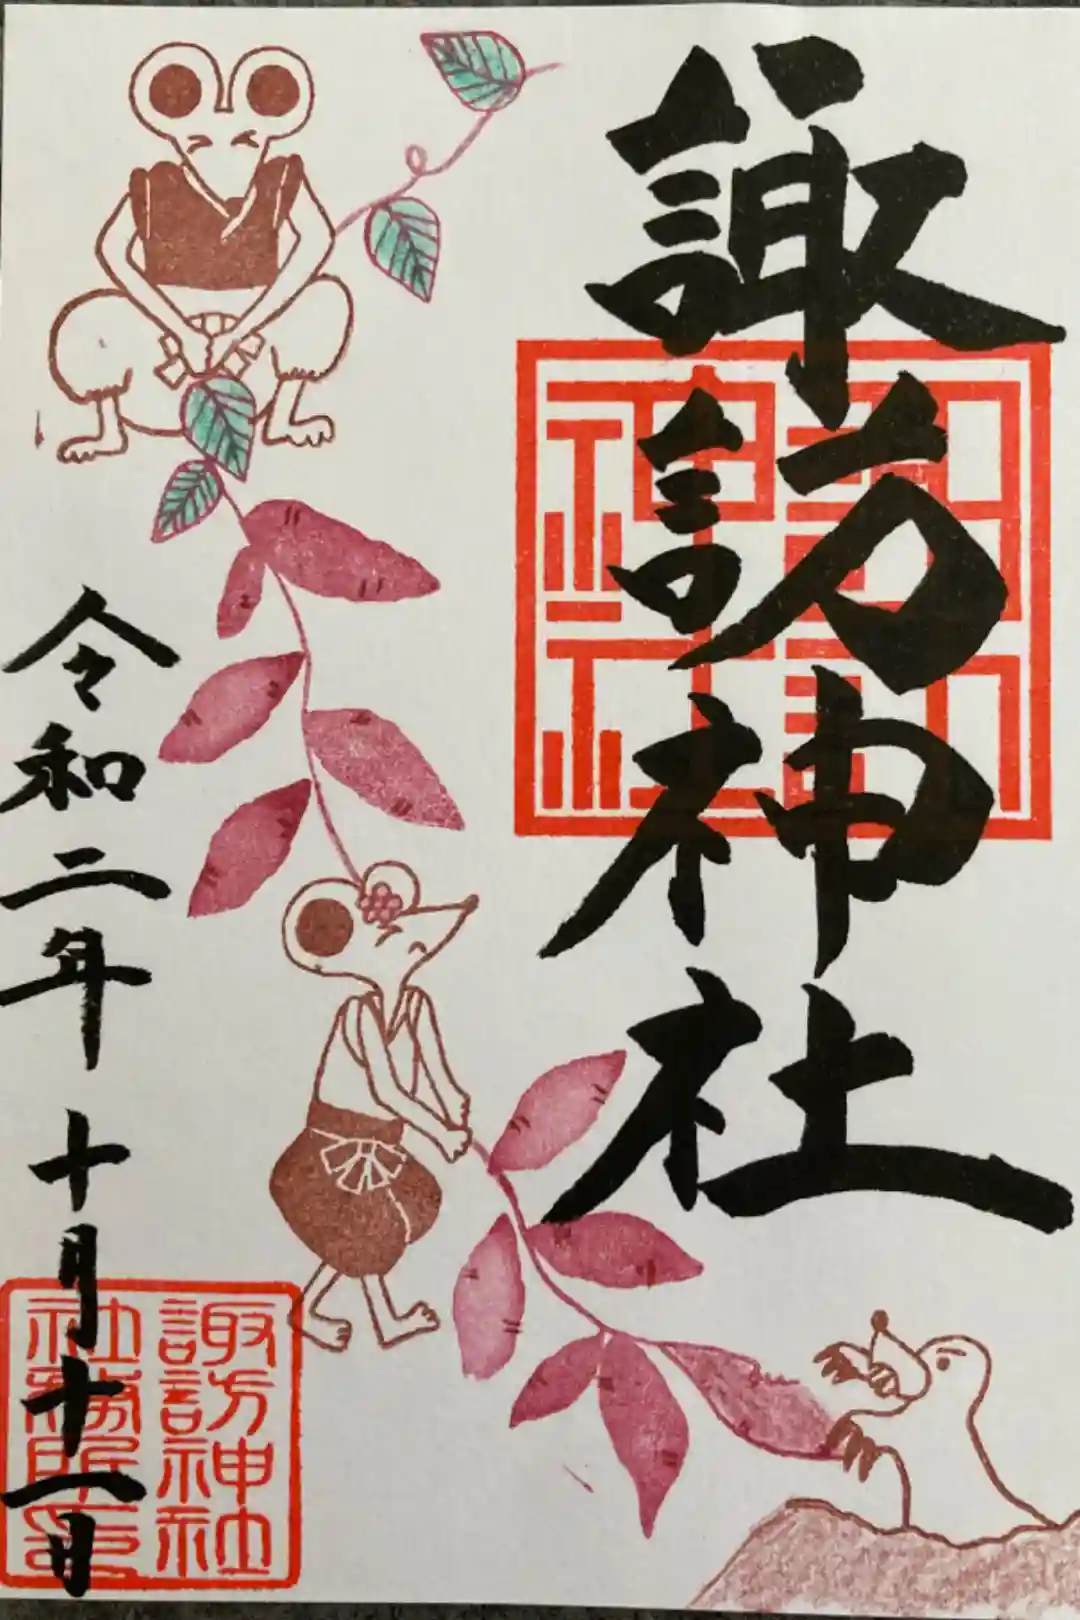 諏訪神社
諏訪神社
令和二年十月十一日
諏訪神社
社務所之印